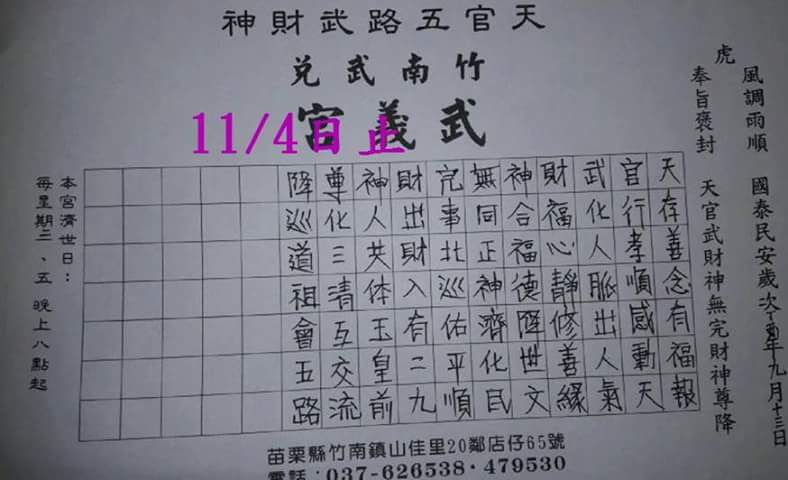 天官五路武財神
竹南武兌
武義宮
11/4日止
風調雨順 國泰民安歲次丁酉年九月十三日
虎
奉旨褒封 天官武財神無完財神尊降
天存善念有福報
官行孝順感動天
武化人脈出人氣
財福心靜修善緣
神合福德降世文
無同正神濟化民
完事北巡佑平順
財出財入有二九
神人共体玉皇前
尊化三清互交流
降巡道祖會五路
本宮濟世日：
每星期二、五 晚上八點起
苗栗縣竹南鎮山佳里20鄰店仔65號
電話：037-626538·479530